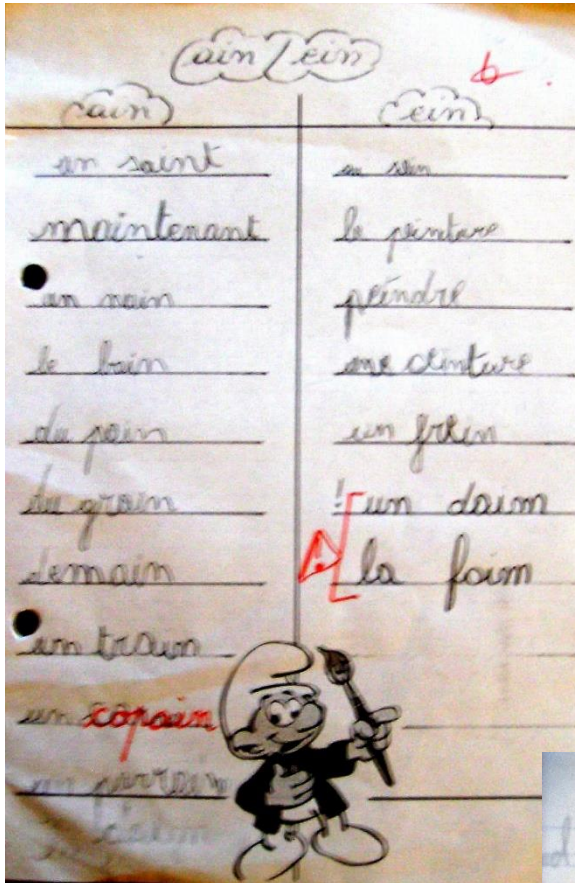 ain / ein
ain
un saint
maintenant
un nain
le bain
du pain
du grain
demain
un train
un copain
ein
peinture
peindre
une ceinture
un frein
! un daim
la faim